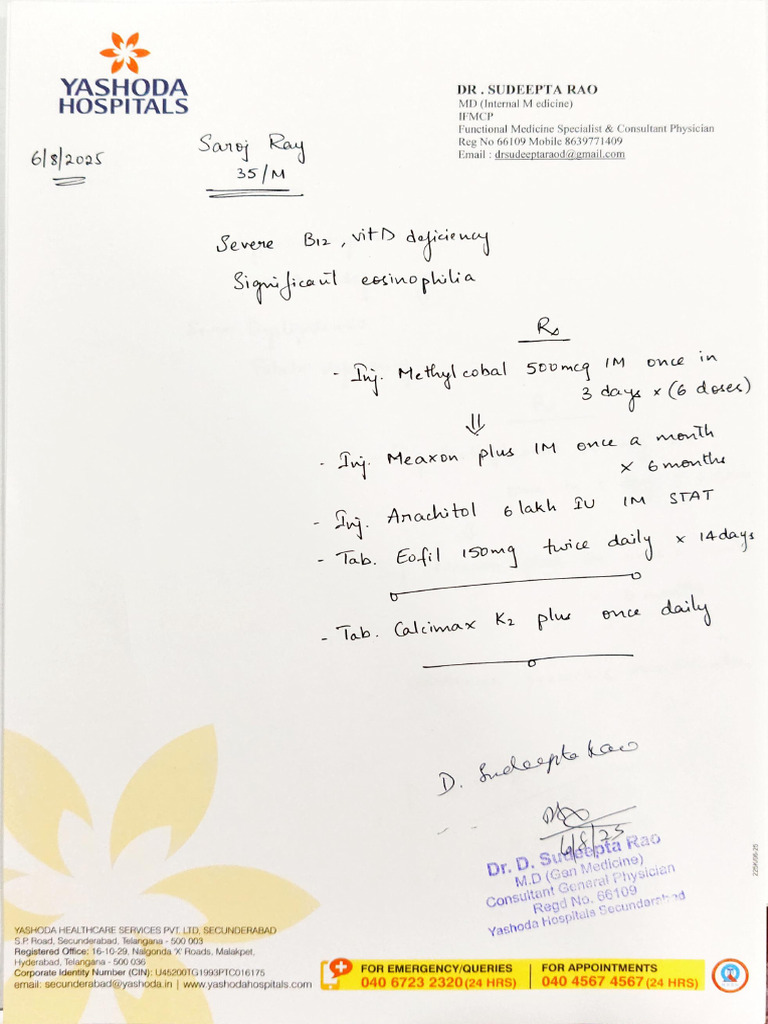 YASHODA
HOSPITALS
DR . SUDEEPTA RAO
MD (Internal M edicine)
IFMCP
Functional Medicine Specialist & Consultant Physician
Reg No 66109 Mobile 8639771409
Email : drsudeeptaraod@gmail.com
6/8/2025
Saroj Ray
35/M
Severe B12, vit D deficiency
Significant eosinophilia
Rx
- Inj. Methylcobal 500mcg IM once in
3 days x (6 doses)
⇓
- Inj. Meaxon plus IM once a month
x 6 months
- Inj. Arachitol 6 lakh IU IM STAT
- Tab. Eofil 150mg twice daily x 14 days
- Tab. Calcimax K2 plus once daily
D. Sudeepta Rao
6/8/25
Dr. D. Sudeepta Rao
M.D (Gen Medicine)
Consultant General Physician
Regd No. 66109
Yashoda Hospitals Secunderabad
YASHODA HEALTHCARE SERVICES PVT. LTD, SECUNDERABAD
S.P. Road, Secunderabad, Telangana - 500 003
Registered Office: 16-10-29, Nalgonda 'X' Roads, Malakpet,
Hyderabad, Telangana - 500 036
Corporate Identity Number (CIN): U45200TG1993PTC016175
email: secunderabad@yashoda.in | www.yashodahospitals.com
FOR EMERGENCY/QUERIES
040 6723 2320 (24 HRS)
FOR APPOINTMENTS
040 4567 4567 (24 HRS)